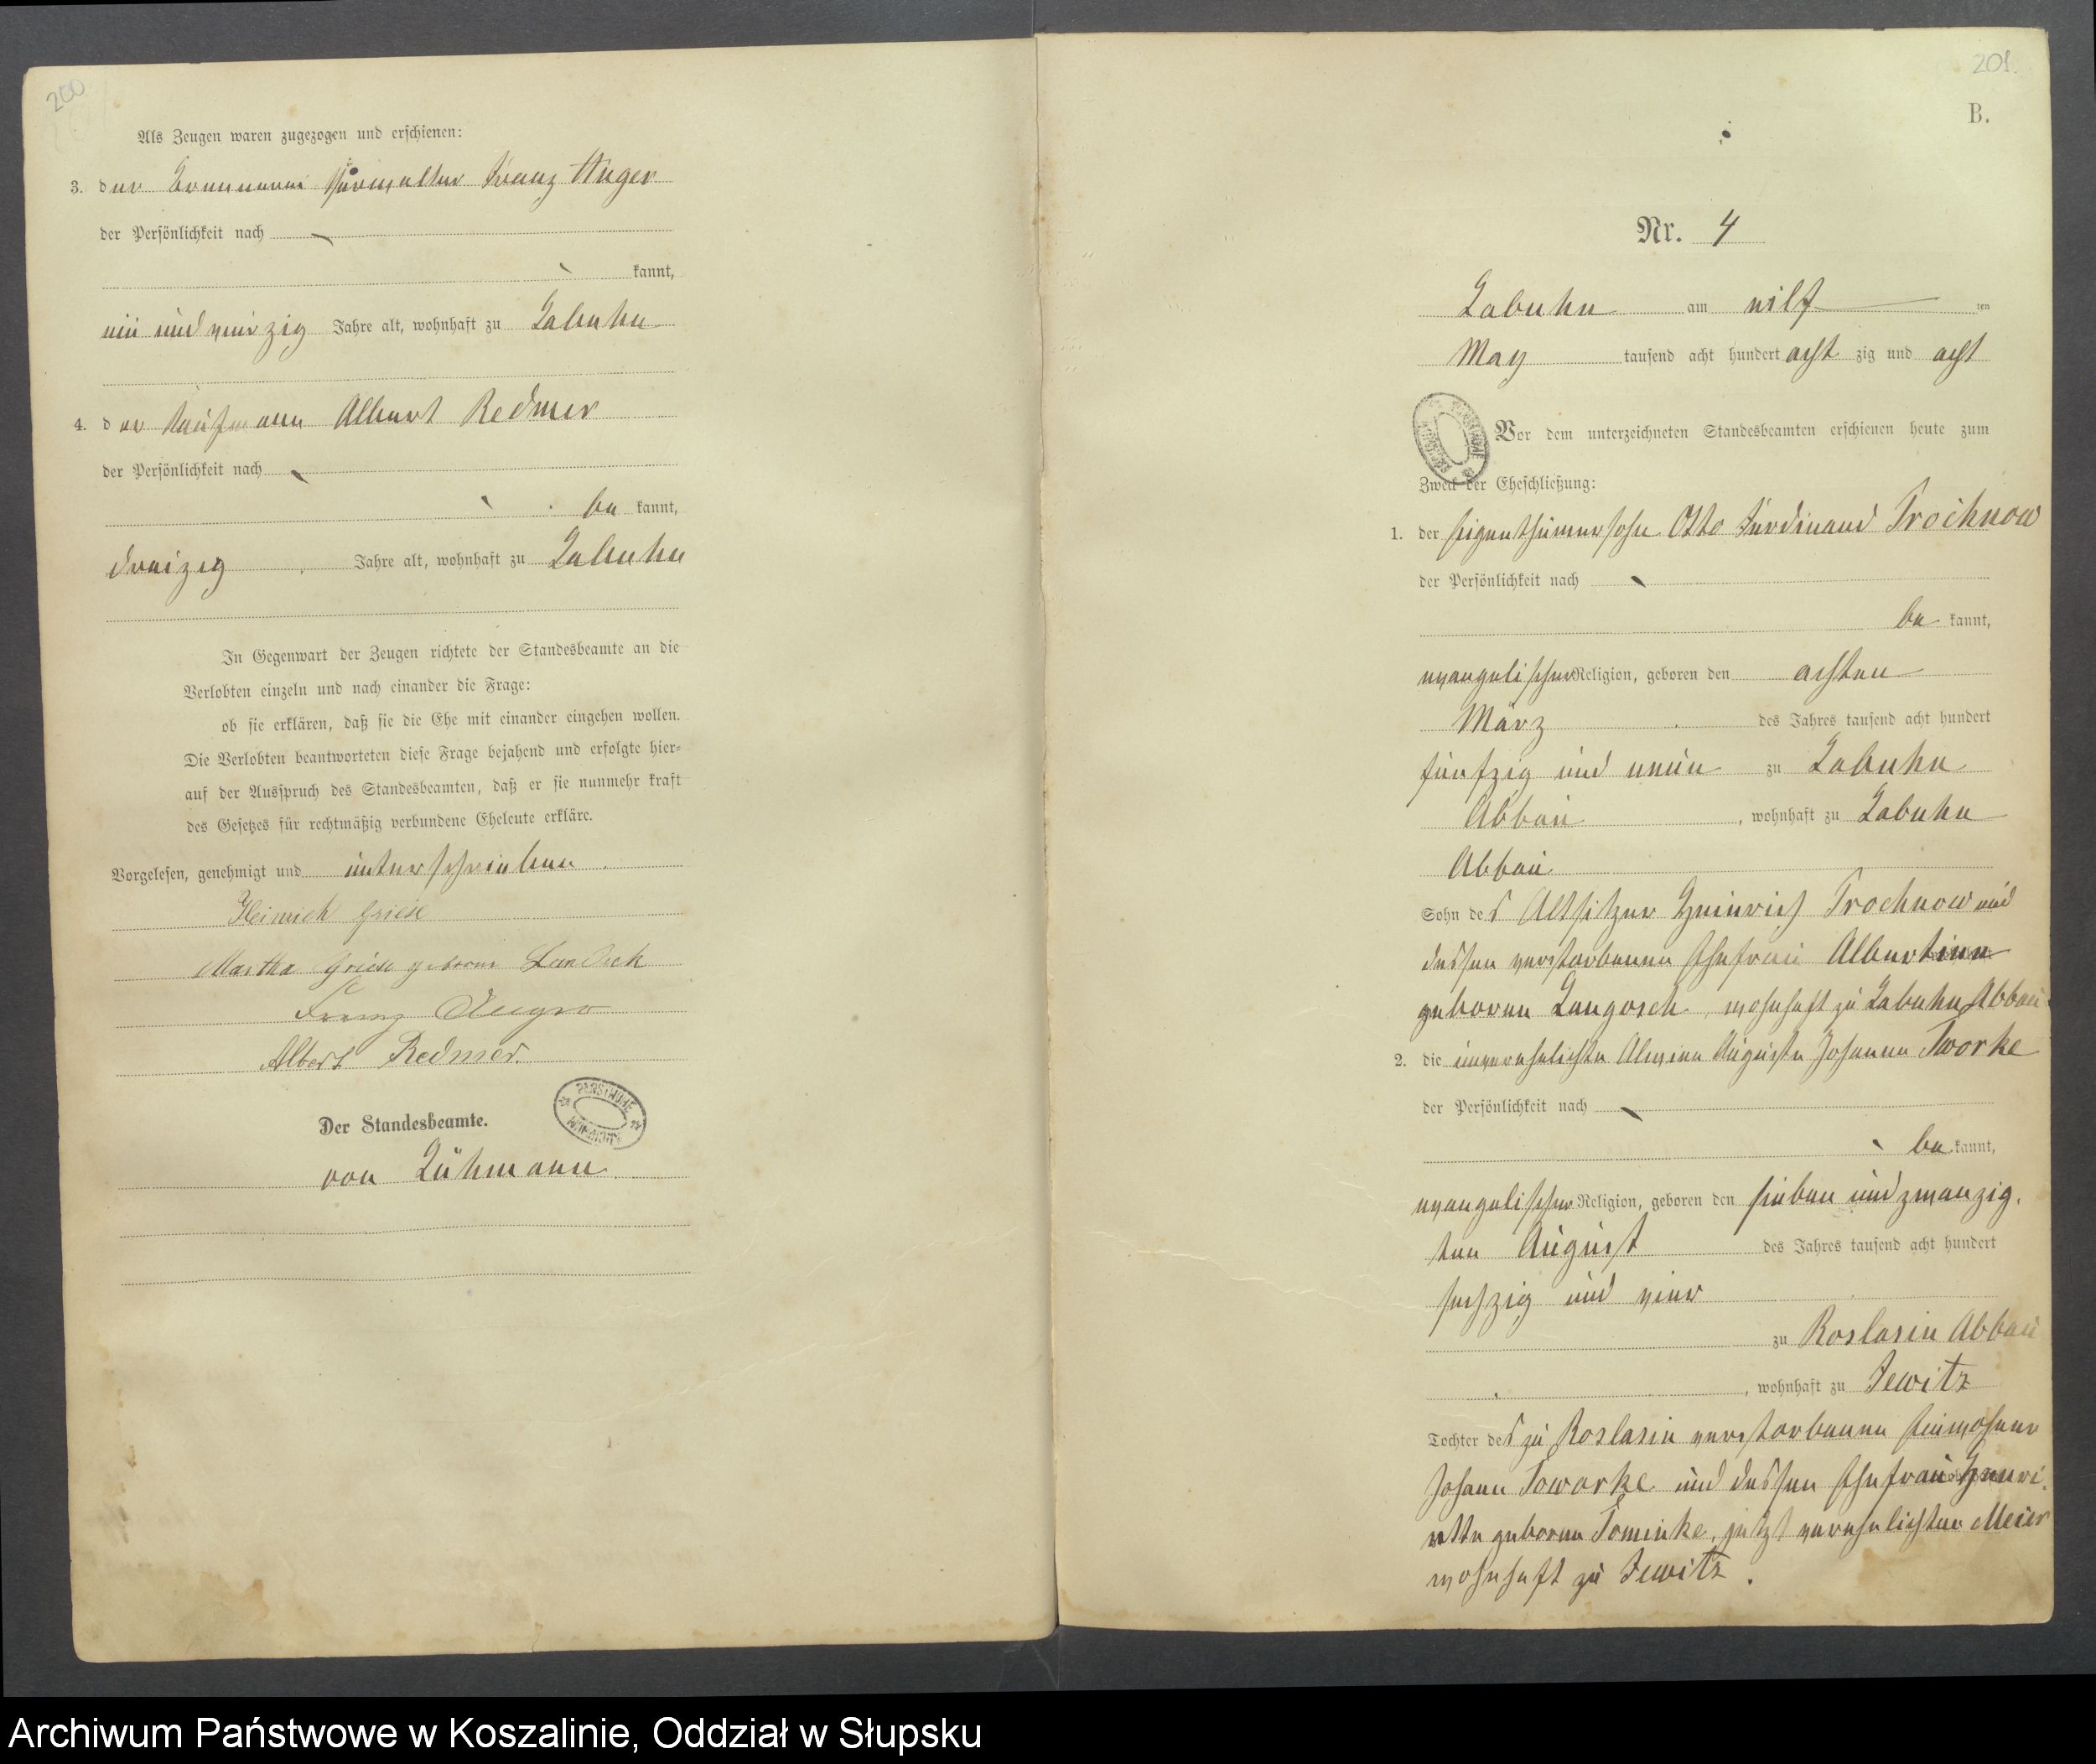 200
Als Zeugen waren zugezogen und erschienen:
3. der Brennerei Verwalter Franz Kuger
der Persönlichkeit nach
kannt,
ein und vierzig Jahre alt, wohnhaft zu Labuhn
4. der Kaufmann Albert Redmer
der Persönlichkeit nach
be kannt,
dreizig Jahre alt, wohnhaft zu Labuhn
In Gegenwart der Zeugen richtete der Standesbeamte an die
Verlobten einzeln und nach einander die Frage:
ob sie erklären, daß sie die Ehe mit einander eingehen wollen.
Die Verlobten beantworteten diese Frage bejahend und erfolgte hier=
auf der Ausspruch des Standesbeamten, daß er sie nunmehr kraft
des Gesetzes für rechtmäßig verbundene Eheleute erkläre.
Vorgelesen, genehmigt und unterschrieben
Heinrich Griese
Martha Griese geborene
Franz
Albert Redmer.
Der Standesbeamte.
von Lühmann
201.
B.
Nr. 4
Labuhn am eilf ten
May tausend acht hundert acht zig und acht
Vor dem unterzeichneten Standesbeamten erschienen heute zum
Zweck der Eheschließung:
1. der Eigenthümersohn Otto Ferdinand Trochnow
der Persönlichkeit nach
be kannt,
evangelischer Religion, geboren den achten
März des Jahres tausend acht hundert
fünfzig und neun zu Labuhn
Abbau, wohnhaft zu Labuhn
Abbau
Sohn des Altsitzer Heinrich Trochnow und
dessen verstorbenen Ehefrau Albertine
geborene Langosch, wohnhaft zu Labuhn Abbau
2. die unverehelichte Alwine Auguste Johanna Tworke
der Persönlichkeit nach
be kannt,
evangelischer Religion, geboren den sieben und zwanzig.
ten August des Jahres tausend acht hundert
sechzig und vier
zu Roslasin Abbau
, wohnhaft zu Jewitz
Tochter des zu Roslasin verstorbenen Einwohner
Johann Towarke und dessen Ehefrau Henri.
ette geborene Tominke, jetzt verehelichter Meier
wohnhaft zu Jewitz.
Archiwum Państwowe w Koszalinie, Oddział w Słupsku